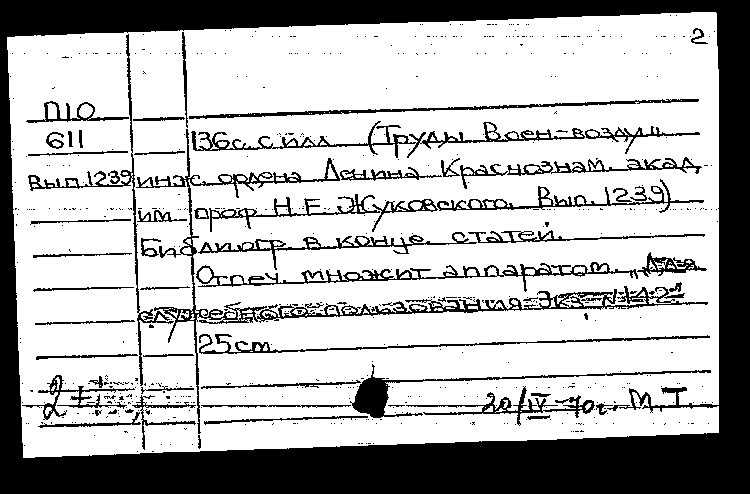 2
П10
611 136с. с илл. (Труды Воен.-воздуш.
Вып.1239 инж. ордена Ленина Краснознам. акад.
им. проф. Н.Е. Жуковского. Вып. 1239)
Библиогр. в конце статей.
Отпеч. множит. аппаратом. „Для
служебного пользования Экз. №142"
25см.
2
20/IV-70г. М.Т.